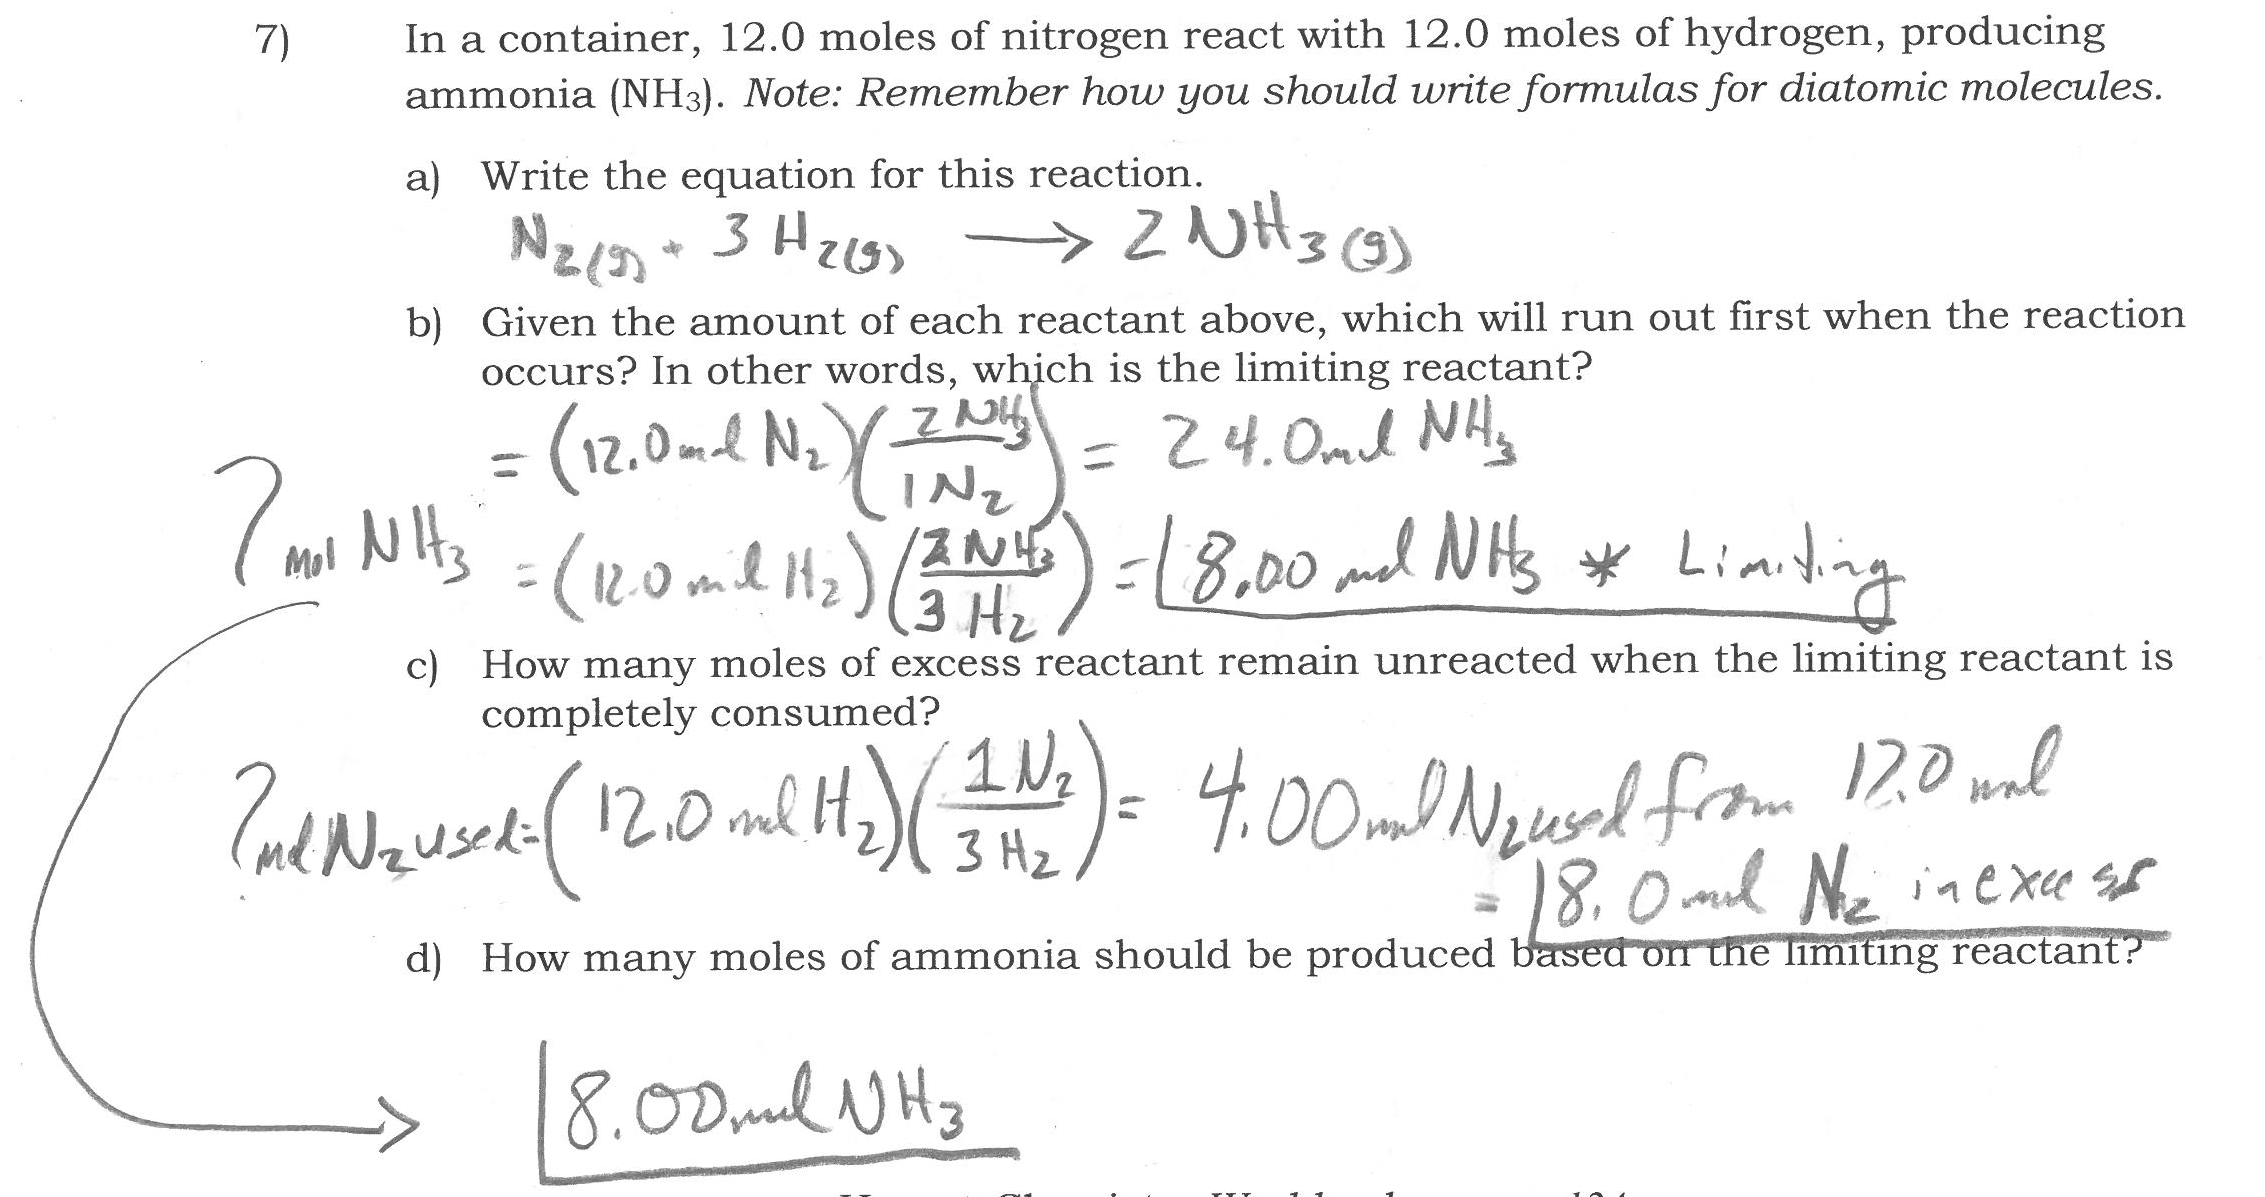 7) In a container, 12.0 moles of nitrogen react with 12.0 moles of hydrogen, producing
ammonia (NH₃). Note: Remember how you should write formulas for diatomic molecules.
a) Write the equation for this reaction.
N₂(g) + 3 H₂(g) → 2 NH₃(g)
b) Given the amount of each reactant above, which will run out first when the reaction
occurs? In other words, which is the limiting reactant?
= (12.0 mol N₂)(2 NH₃/1 N₂) = 24.0 mol NH₃
? mol NH₃
= (12.0 mol H₂)(2 NH₃/3 H₂) = 8.00 mol NH₃ * Limiting
c) How many moles of excess reactant remain unreacted when the limiting reactant is
completely consumed?
? mol N₂ used = (12.0 mol H₂)(1 N₂/3 H₂) = 4.00 mol N₂ used from 12.0 mol
= 8.0 mol N₂ in excess
d) How many moles of ammonia should be produced based on the limiting reactant?
→ 8.00 mol NH₃